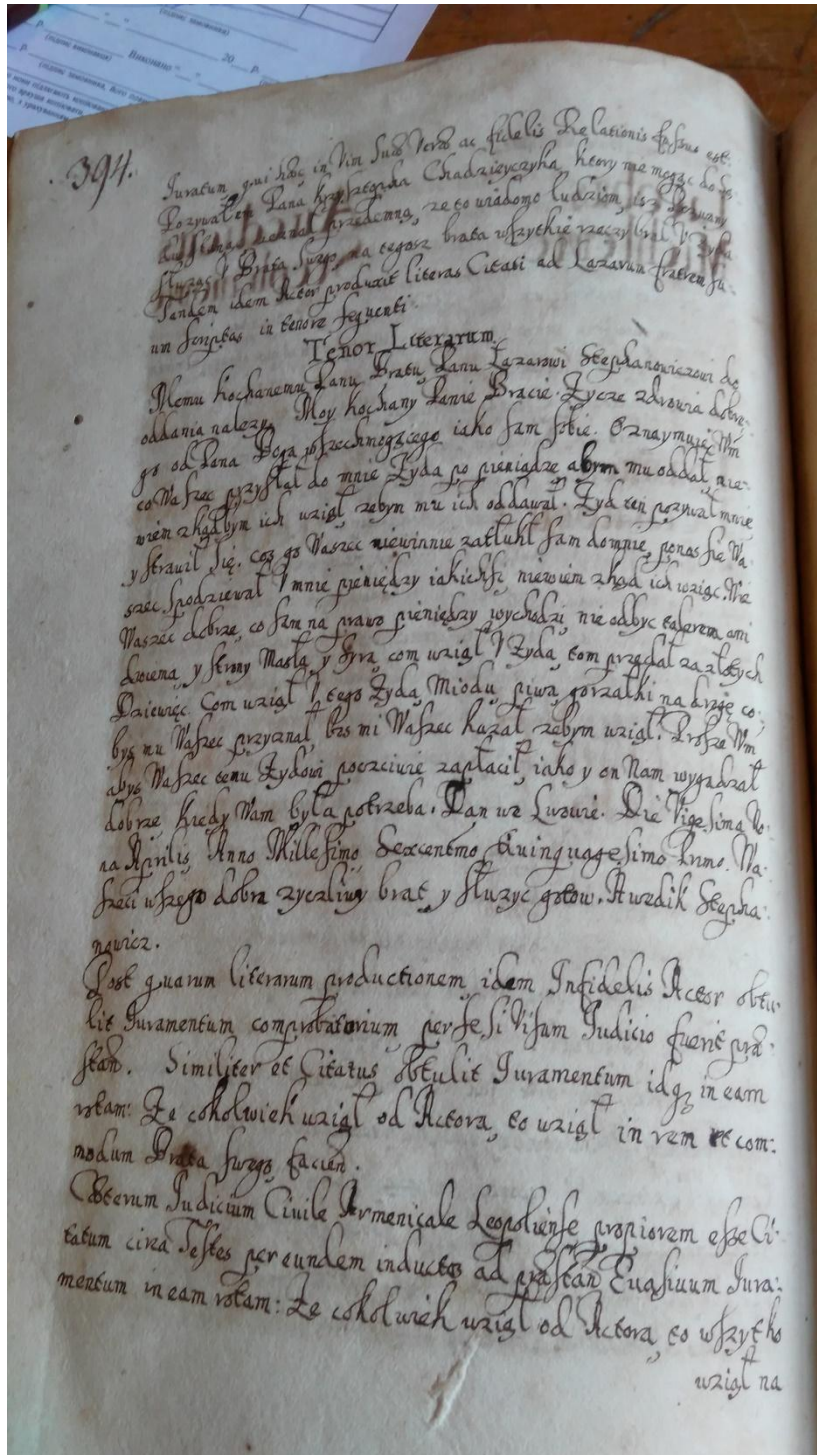 (підпис замовника)
Виконано "__" ____ 20__ р.
(підпис виконавця)
(підпис замовника, його
394.
Iuratum, qui hoc in Vim Suae Verae ac fidelis Relationis fassus est.
Pozywałem Pana Krzysztofa Chadzieyczyka, ktory nie mogąc do
przedemną, ze to wiadomo ludziom, isz
Y Brata Swego, na tegosz brata wszytkie rzeczy brał Y
Tandem idem Actor produxit literas Citati ad Lazarum fratrem su-
um scriptas in tenore sequenti.
Tenor Literarum
Memu kochanemu Panu Bratu, Panu Łazarowi Stephanowiczowi do
oddania nalezy. Moy kochany Panie Bracie. Zycze zdrowia dobre-
go od Pana Boga wszechmogącego iako sam sobie. Oznaymuię Wm
co Waszec przysłał do mnie Zyda po pieniądze, abym mu oddał, nie-
wiem zkądbym ich wziął, zebym mu ich oddawał. Zyd ten pozywał mnie
y strawił się, cosz go Waszec niewinnie zatłukł sam do mnie, ponas sie Wa-
szec spodziewał Y mnie pieniędzy iakichsi, niewiem zkąd ich wziąc. Wie
Waszec dobrze, co sam na prawo pieniędzy wychodzi, nie odbyc talerem ani
dwema, y strony Masła, y Syra, com wziął Y Zyda, tom przedał za złotych
Dziewięc. Com wziął Y tego Zyda, Miodu, piwa, gorzałki na drogę, co-
bys mu Waszec przyznał, bos mi Waszec kazał, zebym wziął. Prosze Wm
abys Waszec temu Zydowi poczciwie zapłacił, iako y on Nam wygadzał
dobrze, kiedy Wam była potrzeba. Dan we Lwowie. Die Vigesima No-
na Aprilis, Anno Millesimo Sexcentmo Quinquagesimo Primo. Wa-
szeci wszego dobra zyczliwy brat, y słuzyc gotow. Awedik Stepha-
nowicz.
Post quarum literarum productionem, idem Infidelis Actor obtu-
lit Iuramentum comprobatorium per se, si Visum Iudicio fuerit prae-
stan. Similiter et Citatus obtulit Iuramentum idq; in eam
rotam: Ze cokolwiek wziął od Actora, to wziął in rem et com-
modum Brata swego facien.
Caeterum Iudicium Civile Armenicale Leopoliense propiorem esse Ci-
tatum circa Testes per eundem inductos ad praestan Evasivum Iura-
mentum in eam rotam: Ze cokolwiek wziął od Actora, to wszytko
wziął na